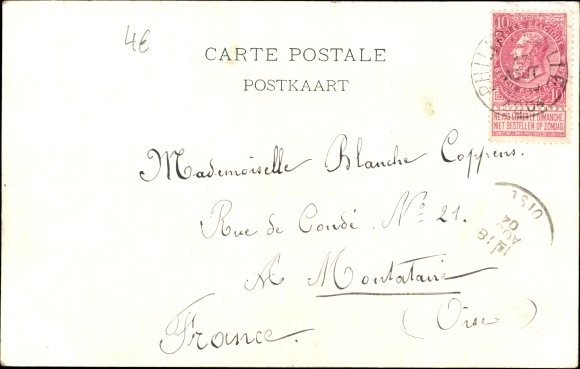 4€
CARTE POSTALE
POSTKAART
10 10
NE PAS LIVRER LE DIMANCHE
NIET BESTELLEN OP ZONDAG
Mademoiselle Blanche Coppens.
Rue de Condé. Nº 21.
A Montataire
(Oise)
France.
OISE
18
04